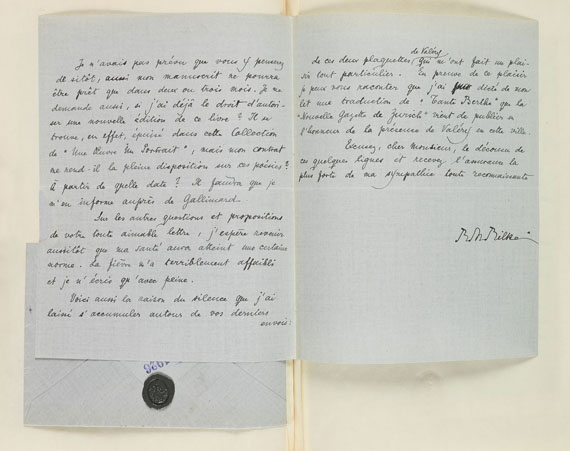 Je n'avais pas prévu que vous y pensez
de sitôt, aussi mon manuscrit ne pourra
être prêt que dans deux ou trois mois. Je me
demande aussi, si j'ai déjà le droit d'autori-
ser une nouvelle édition de ce livre? Il se
trouve, en effet, épuisé dans cette Collection
de "Une Œuvre Un Portrait", mais mon contrat
me rend-il la pleine disposition sur ces poésies?
à partir de quelle date? Il faudra que je
m'en informe auprès de Gallimard.
Sur les autres questions et propositions
de votre toute aimable lettre, j'espère revenir
aussitôt que ma santé aura atteint une certaine
norme. La fièvre m'a terriblement affaibli
et je n'écris qu'avec peine.
Voici aussi la raison du silence que j'ai
laissé s'accumuler autour de vos derniers
envois:
de Valéry
de ces deux plaquettes qui m'ont fait un plai-
sir tout particulier. En preuve de ce plaisir
je peux vous raconter que j'ai dicté de mon
lit une traduction de "Tante Berthe" que la
"Nouvelle Gazette de Zurich" vient de publier en
l'honneur de la présence de Valéry en cette ville.
Excusez, cher monsieur, le décousu de
ces quelques lignes et recevez l'assurance la
plus forte de ma sympathie toute reconnaissante
R. M. Rilke